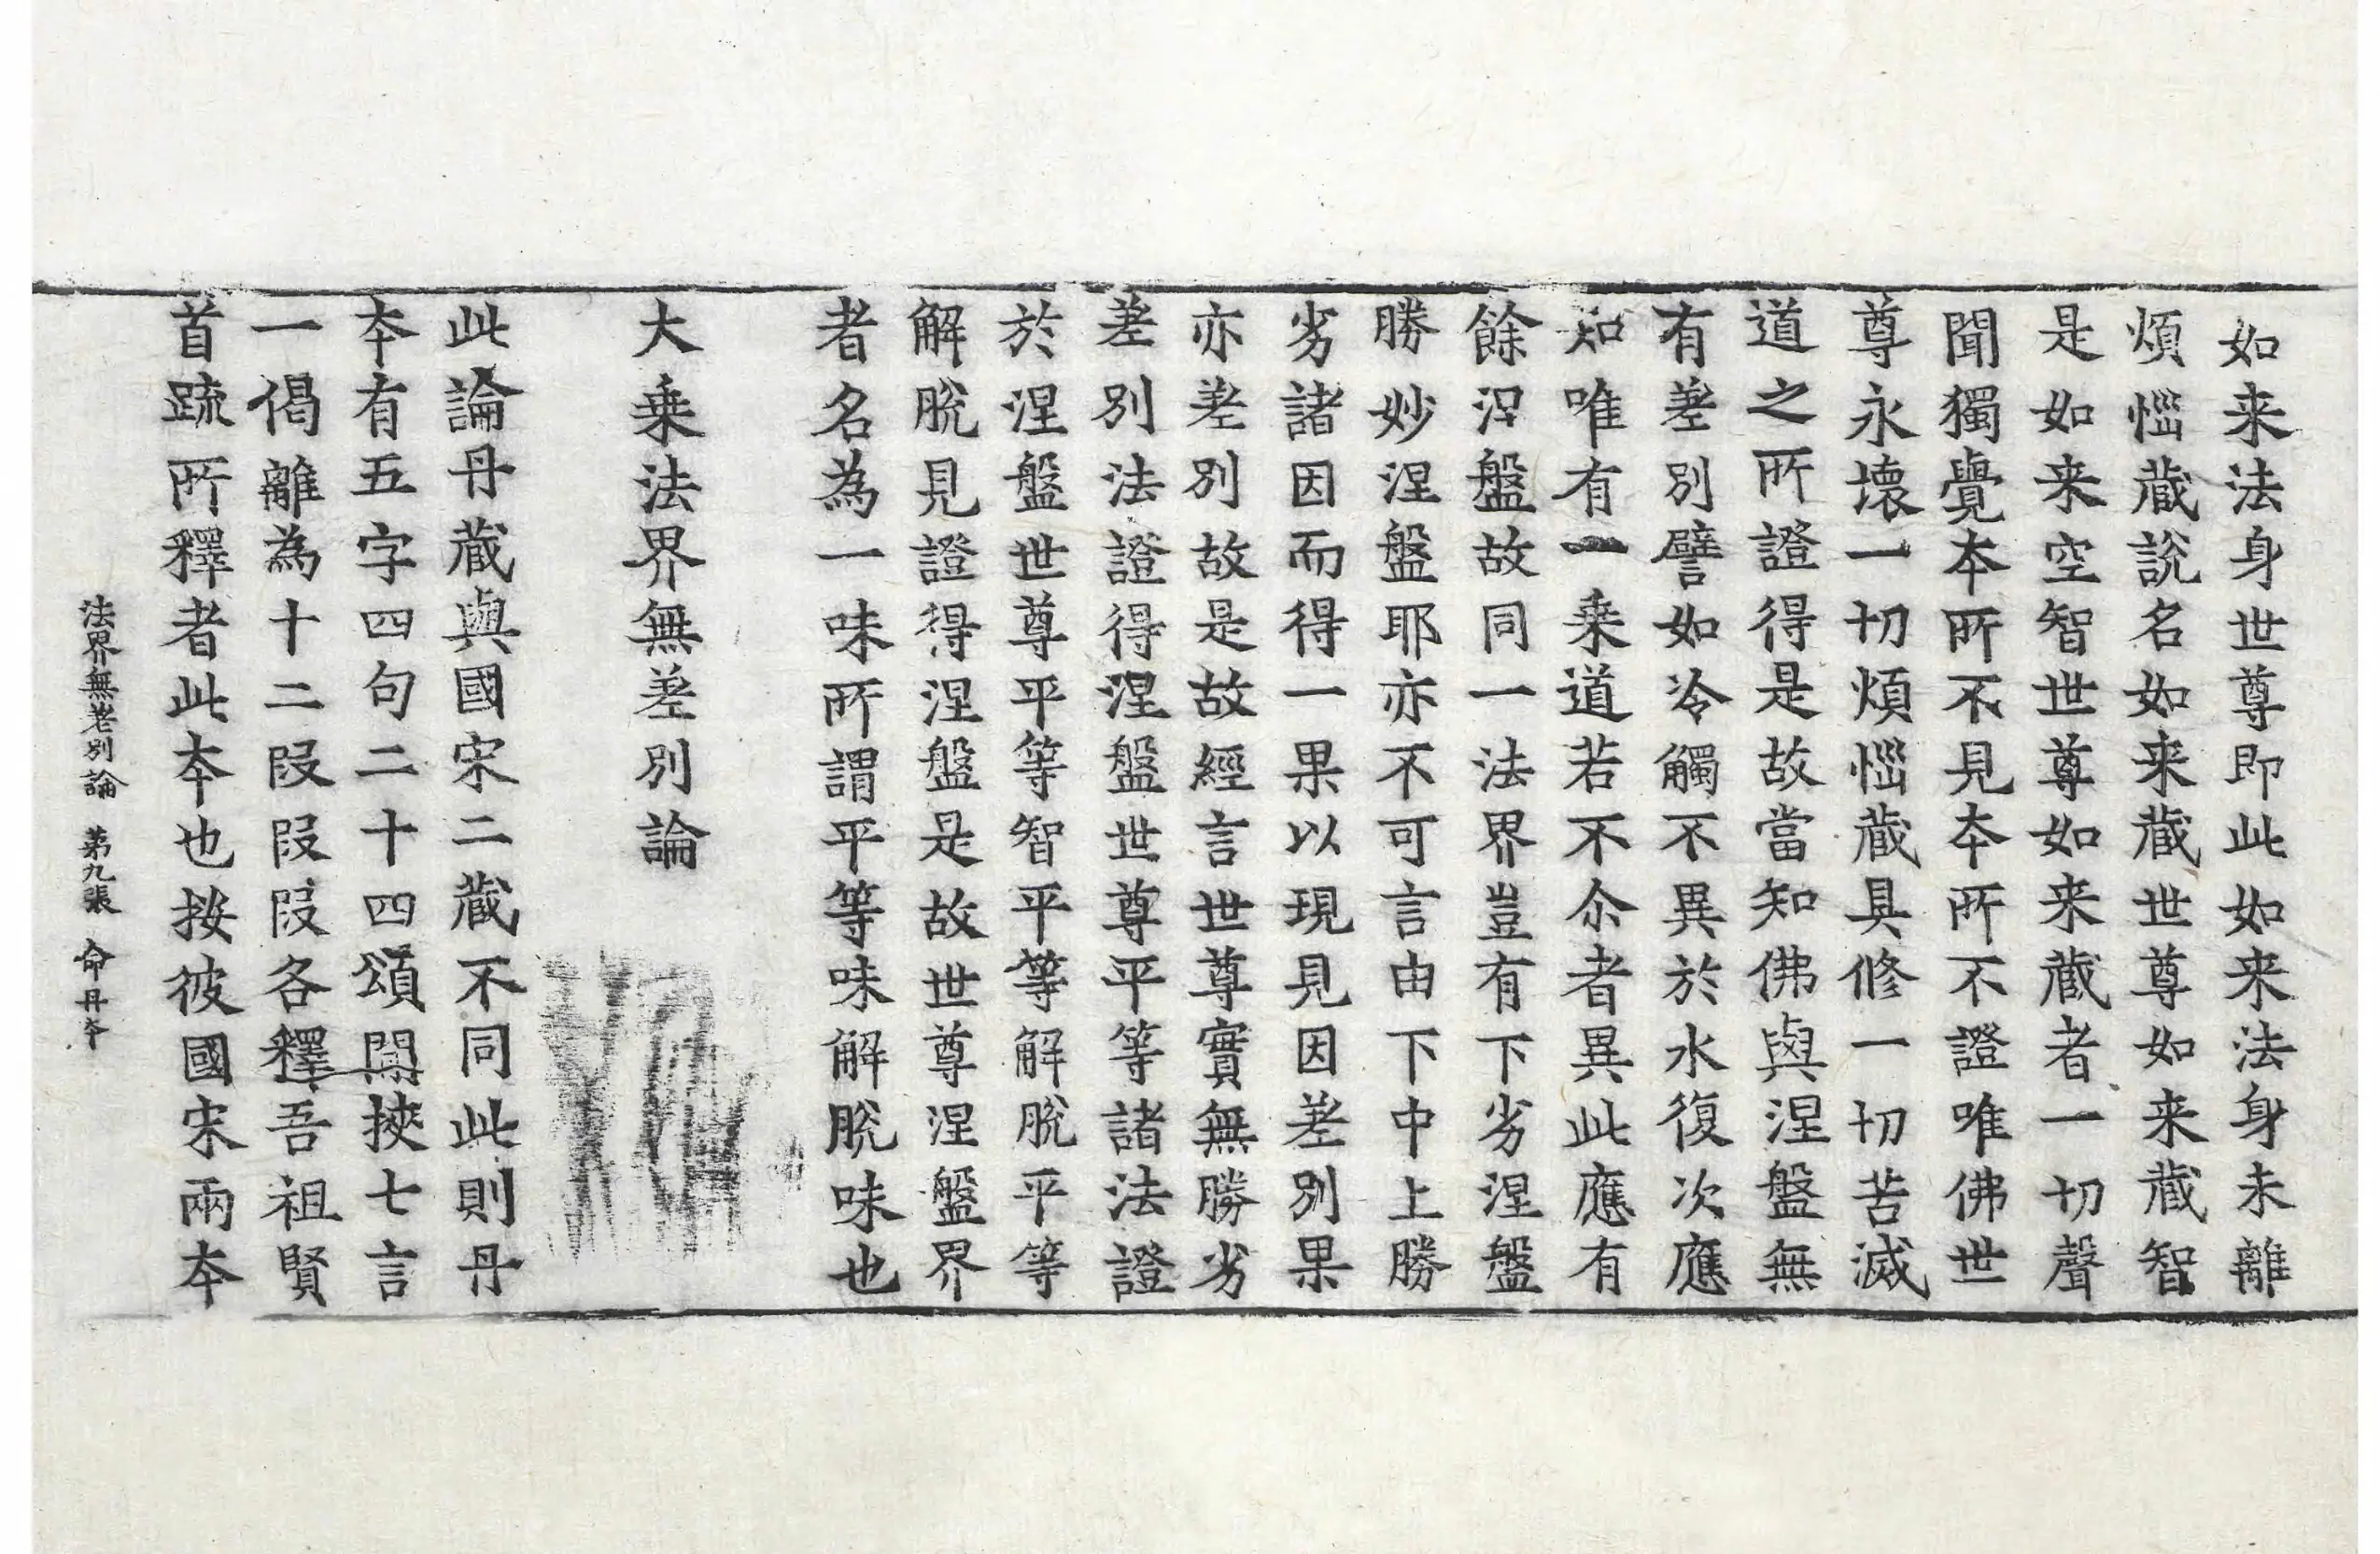 如来法身世尊即此如来法身未離
煩惱藏說名如来藏世尊如来藏智
是如来空智世尊如来藏者一切聲
聞獨覺夲所不見夲所不證唯佛世
尊永壞一切煩惱藏具修一切苦滅
道之所證得是故當知佛與涅盤無
有差別譬如冷觸不異於水復次應
知唯有一乗道若不尒者異此應有
餘涅盤故同一法界豈有下劣涅盤
勝妙涅盤耶亦不可言由下中上勝
劣諸因而得一果以現見因差別果
亦差別故是故經言世尊實無勝劣
差別法證得涅盤世尊平等諸法證
於涅盤世尊平等智平等解脫平等
解脫見證得涅盤是故世尊涅盤界
者名為一味所謂平等味解脫味也
大乗法界無差別論
此論丹藏與國宋二藏不同此則丹
夲有五字四句二十四頌閒挾七言
一偈離為十二段段段各釋吾祖賢
首疏所釋者此夲也按彼國宋兩夲
法界無差別論 第九張 命丹夲